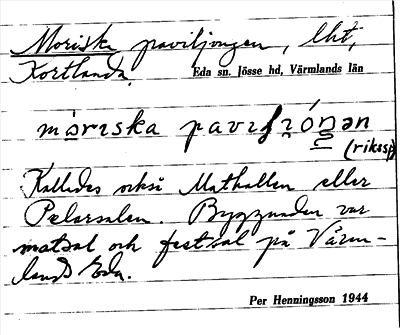 Moriska paviljongen, lht,
Kortlanda. Eda sn. Jösse hd, Värmlands län
mòrıska pavıʃı̯óŋən
(rikssp)
Kallades också Mathallen eller
Pelarsalen. Byggnaden var
matsal och festsal på Värm-
lands Eda.
Per Henningsson 1944